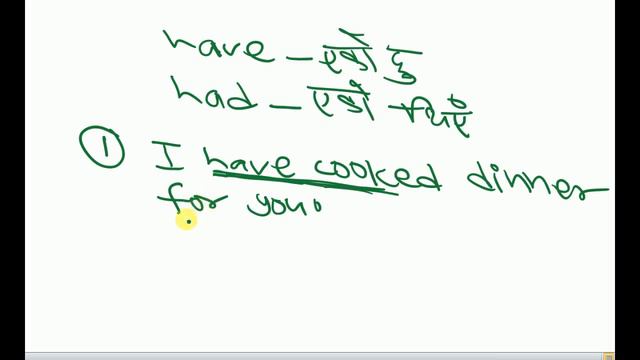 have – एको छु
had – एको थिएँ
① I have cooked dinner
for you.